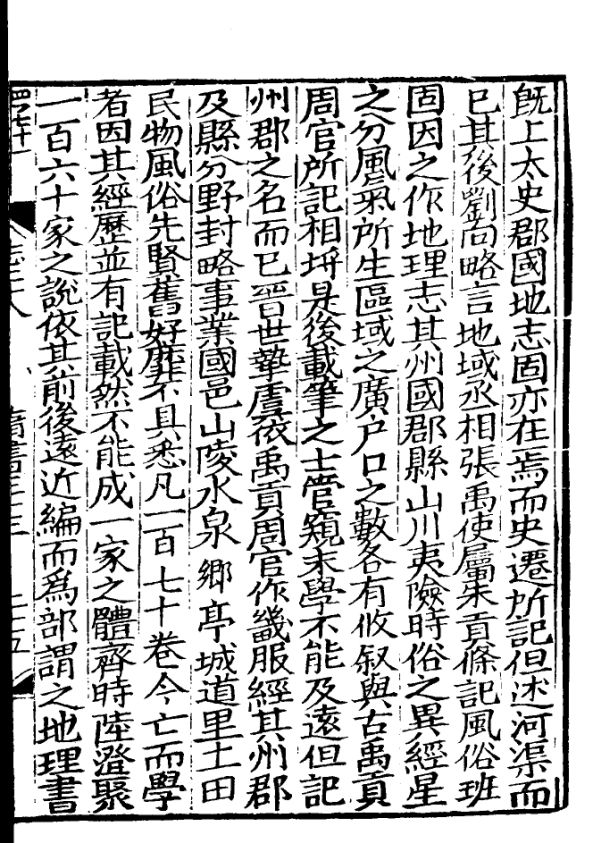 既上太史郡國地志固亦在焉而史遷所記但述河渠而
已其後劉向略言地域丞相張禹使屬朱貢條記風俗班
固因之作地理志其州國郡縣山川夷險時俗之異經星
之分風氣所生區域之廣户口之數各有攸叙與古禹貢
周官所記相埒是後載筆之士管窺末學不能及遠但記
州郡之名而已晉世摯虞依禹貢周官作畿服經其州郡
及縣分野封略事業國邑山陵水泉鄉亭城道里土田
民物風俗先賢舊好靡不具悉凡一百七十卷今亡而學
者因其經歷並有記載然不能成一家之體齊時陸澄聚
一百六十家之說依其前後遠近編而爲部謂之地理書
志二八 隋書三三 二十五